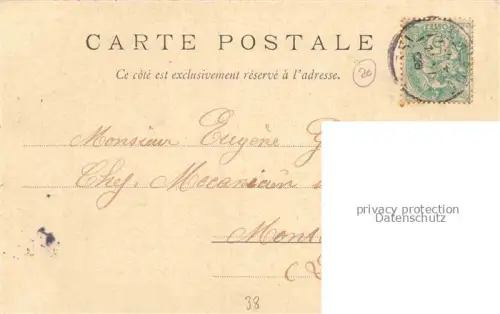 CARTE POSTALE
Ce côté est exclusivement réservé à l'adresse.
20
Monsieur Eugène G
Chef Mecanicien
privacy protection
Datenschutz
Mont
38